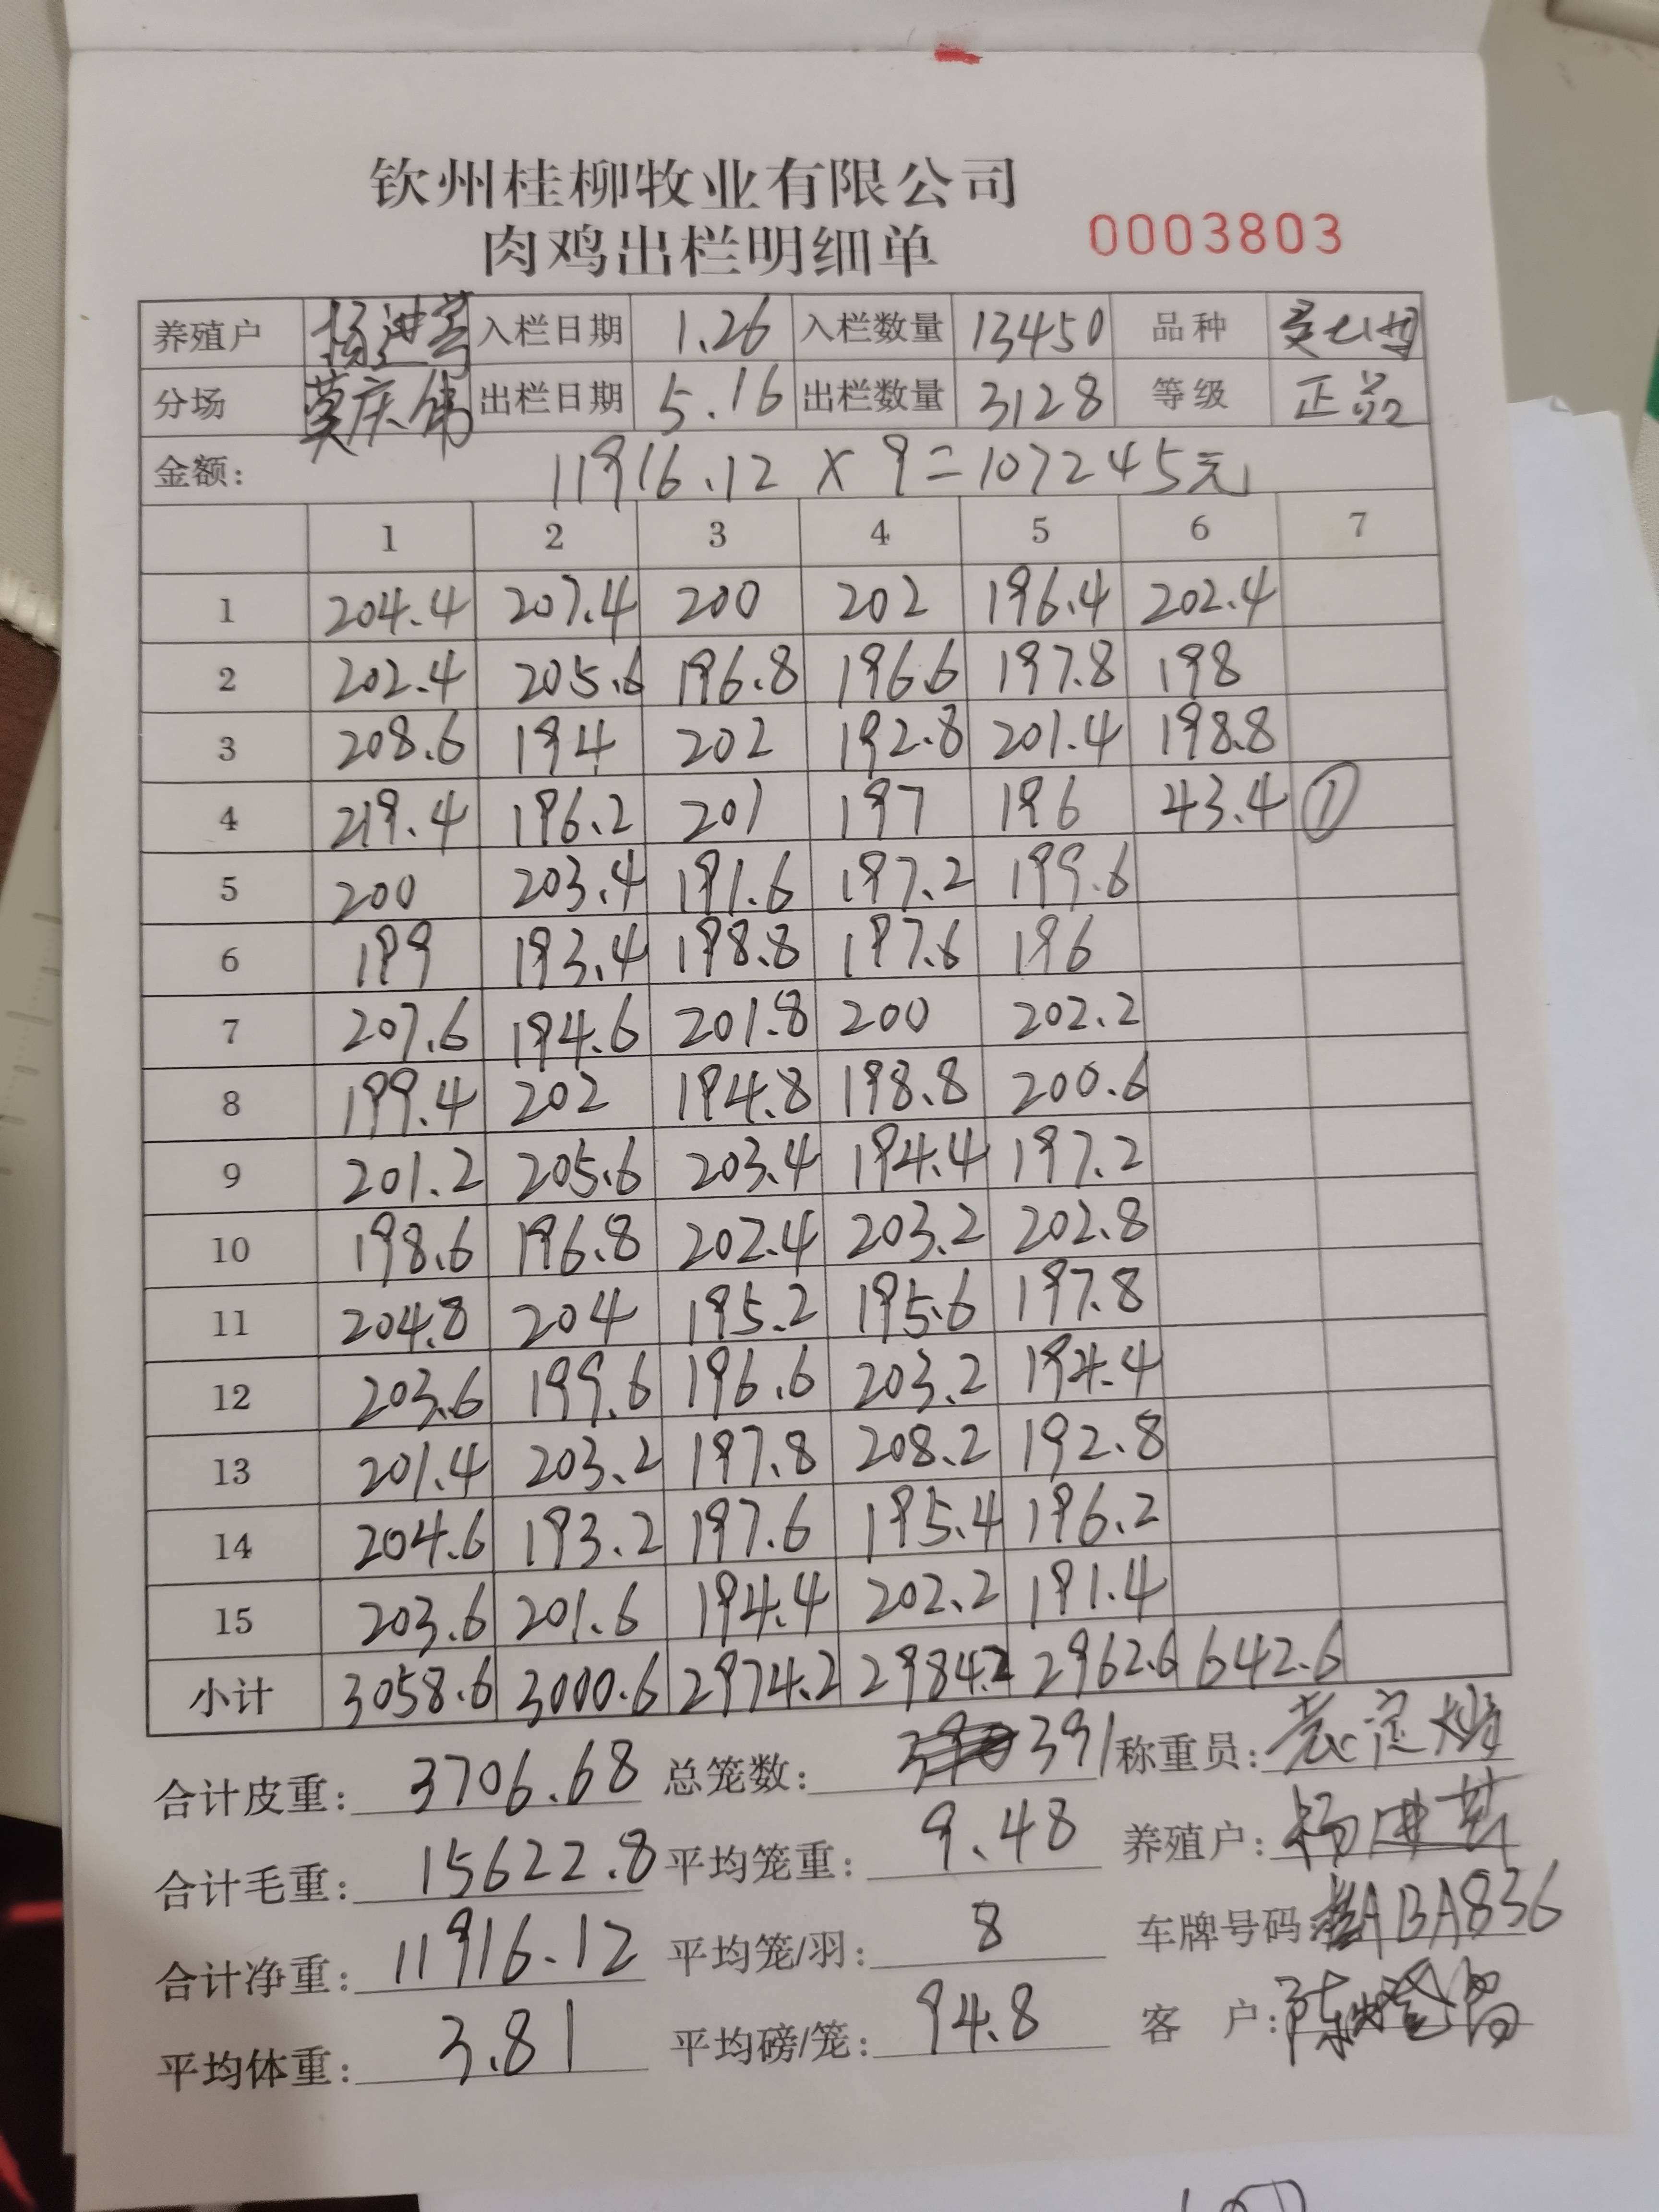 钦州桂柳牧业有限公司
肉鸡出栏明细单 0003803
养殖户 杨进 入栏日期 1.26 入栏数量 13450 品种
分场 莫庆伟 出栏日期 5.16 出栏数量 3128 等级 正品
金额: 11916.12 × 9=107245元
1 2 3 4 5 6 7
1 204.4 207.4 200 202 196.4 202.4
2 202.4 205.6 196.8 196.6 197.8 198
3 208.6 194 202 192.8 201.4 198.8
4 219.4 196.2 201 197 196 43.4 ①
5 200 203.4 191.6 197.2 199.6
6 199 193.4 198.8 197.6 196
7 207.6 194.6 201.8 200 202.2
8 199.4 202 194.8 198.8 200.6
9 201.2 205.6 203.4 194.4 197.2
10 198.6 196.8 202.4 203.2 202.8
11 204.8 204 195.2 195.6 197.8
12 203.6 199.6 196.6 203.2 194.4
13 201.4 203.2 197.8 208.2 192.8
14 204.6 193.2 197.6 195.4 196.2
15 203.6 201.6 194.4 202.2 191.4
小计 3058.6 3000.6 2974.2 2984.2 2962.6 642.6
合计皮重: 3706.68 总笼数: 391 称重员:
合计毛重: 15622.8 平均笼重: 9.48 养殖户: 杨进
合计净重: 11916.12 平均笼/羽: 8 车牌号码: ABA836
平均体重: 3.81 平均磅/笼: 94.8 客 户: 陈